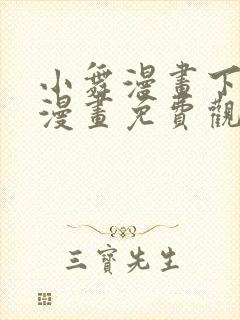 小舞漫畫下
漫畫免費觀
三寶先生